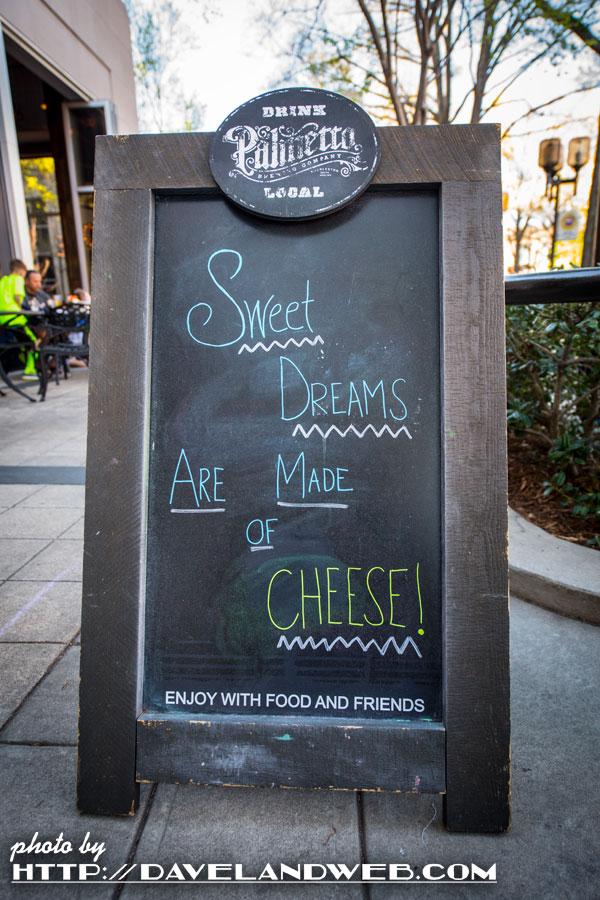 DRINK
Palmetto
BREWING COMPANY
LOCAL
Sweet
DREAMS
ARE MADE
OF
CHEESE!
ENJOY WITH FOOD AND FRIENDS
photo by
HTTP://DAVELANDWEB.COM